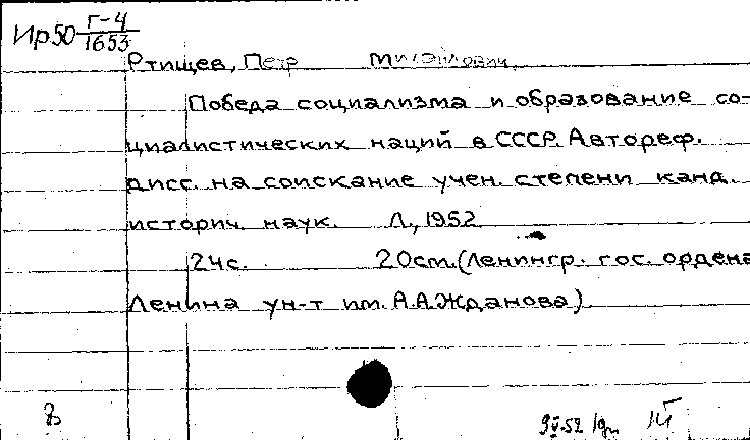 Ир50 Г-4/1653
Ртищев, Петр Михайлович.
Победа социализма и образование со-
циалистических наций в СССР. Автореф.
дисс. на соискание учен. степени канд.
историч. наук. Л., 1952
24с. 20см. (Ленингр. гос. ордена
Ленина ун-т им. А.А.Жданова)